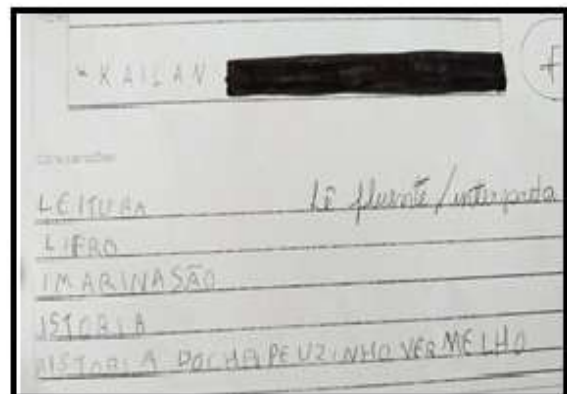 KAILAN
LEITURA Lê fluente/interpreta
LIFRO
IMARINASÃO
ISTORIA
AISTORIA DOCHAPEUZINHO VERMELHO